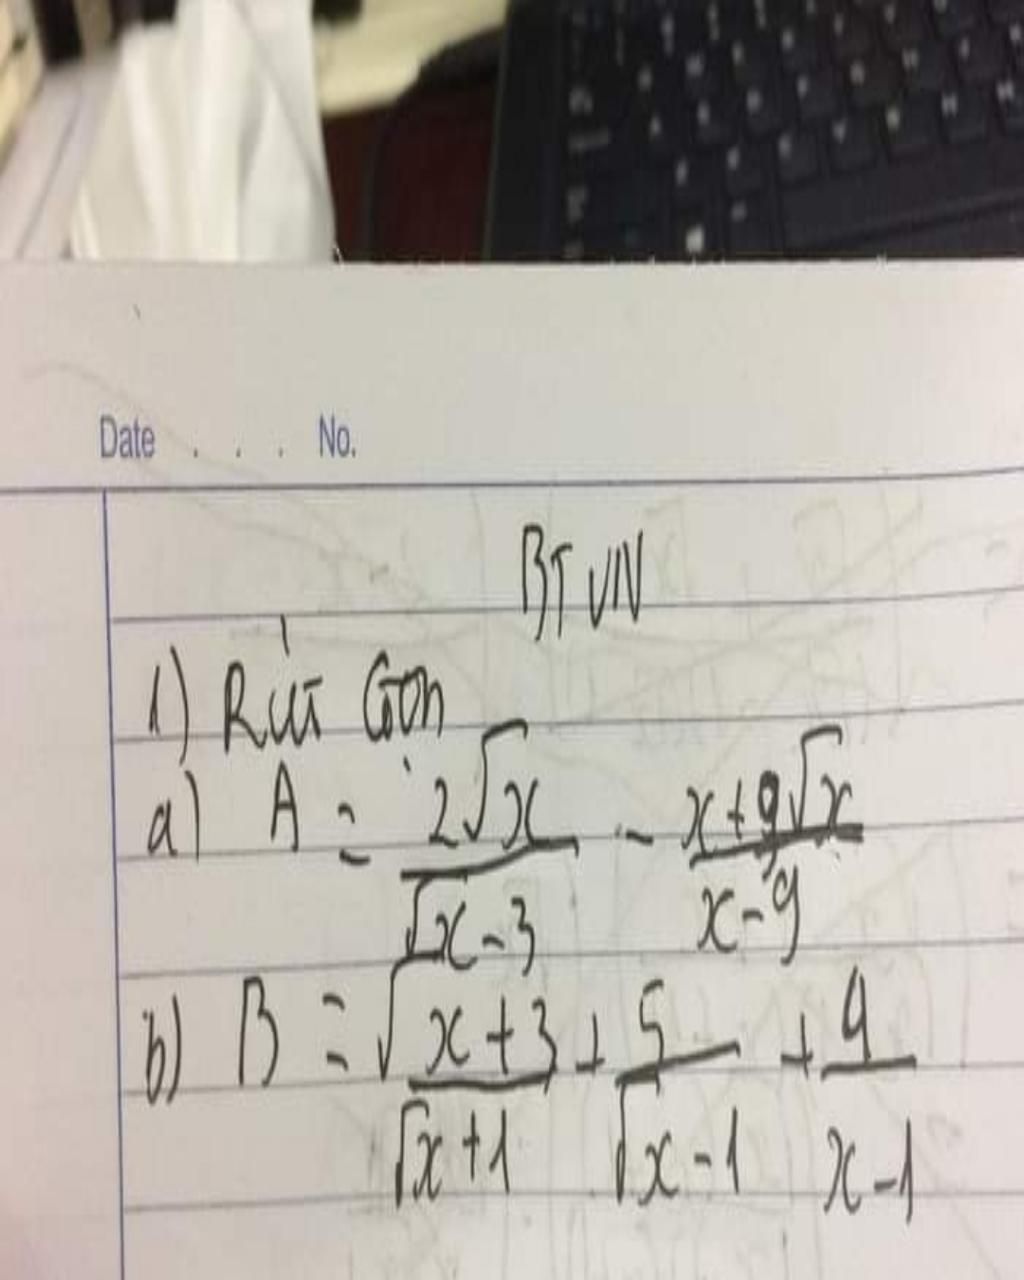 Date . . . No.
BTVN
1) Rút Gọn
a) A = 2√x / √x - 3 - x + 9√x / x - 9
b) B = √x + 3 / √x + 1 + 5 / √x - 1 + 4 / x - 1